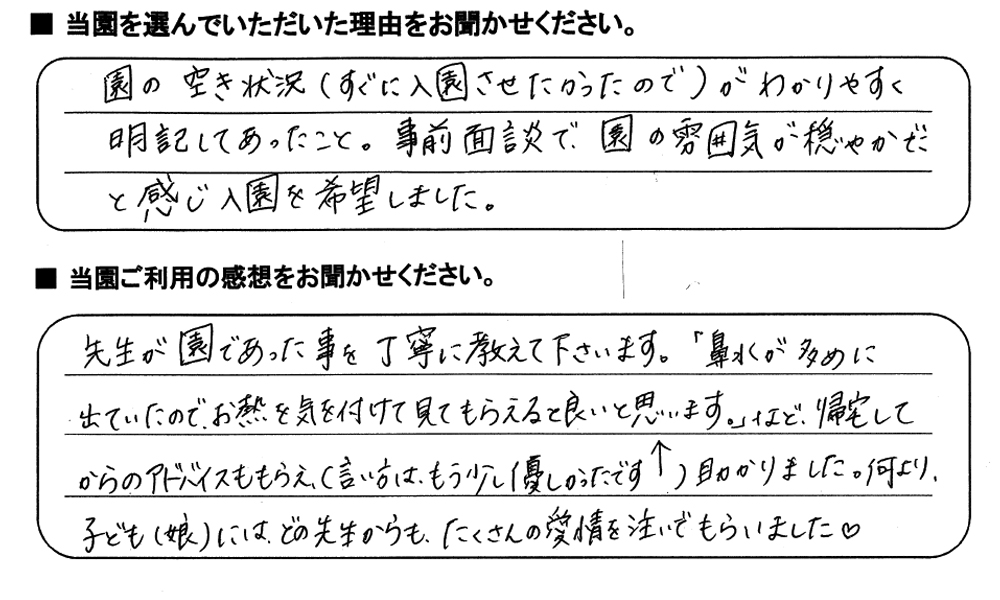 ■ 当園を選んでいただいた理由をお聞かせください。
園の空き状況(すぐに入園させたかったので)がわかりやすく
明記してあったこと。事前面談で、園の雰囲気が穏やかだ
と感じ入園を希望しました。
■ 当園ご利用の感想をお聞かせください。
先生が園であった事を丁寧に教えて下さいます。「鼻水が多めに
出ていたので、お熱を気を付けて見てもらえると良いと思います。」など、帰宅して
からのアドバイスももらえ、(言い方は、もう少し優しかったです↑)助かりました。何より、
子ども(娘)には、どの先生からも、たくさんの愛情を注いでもらいました♡